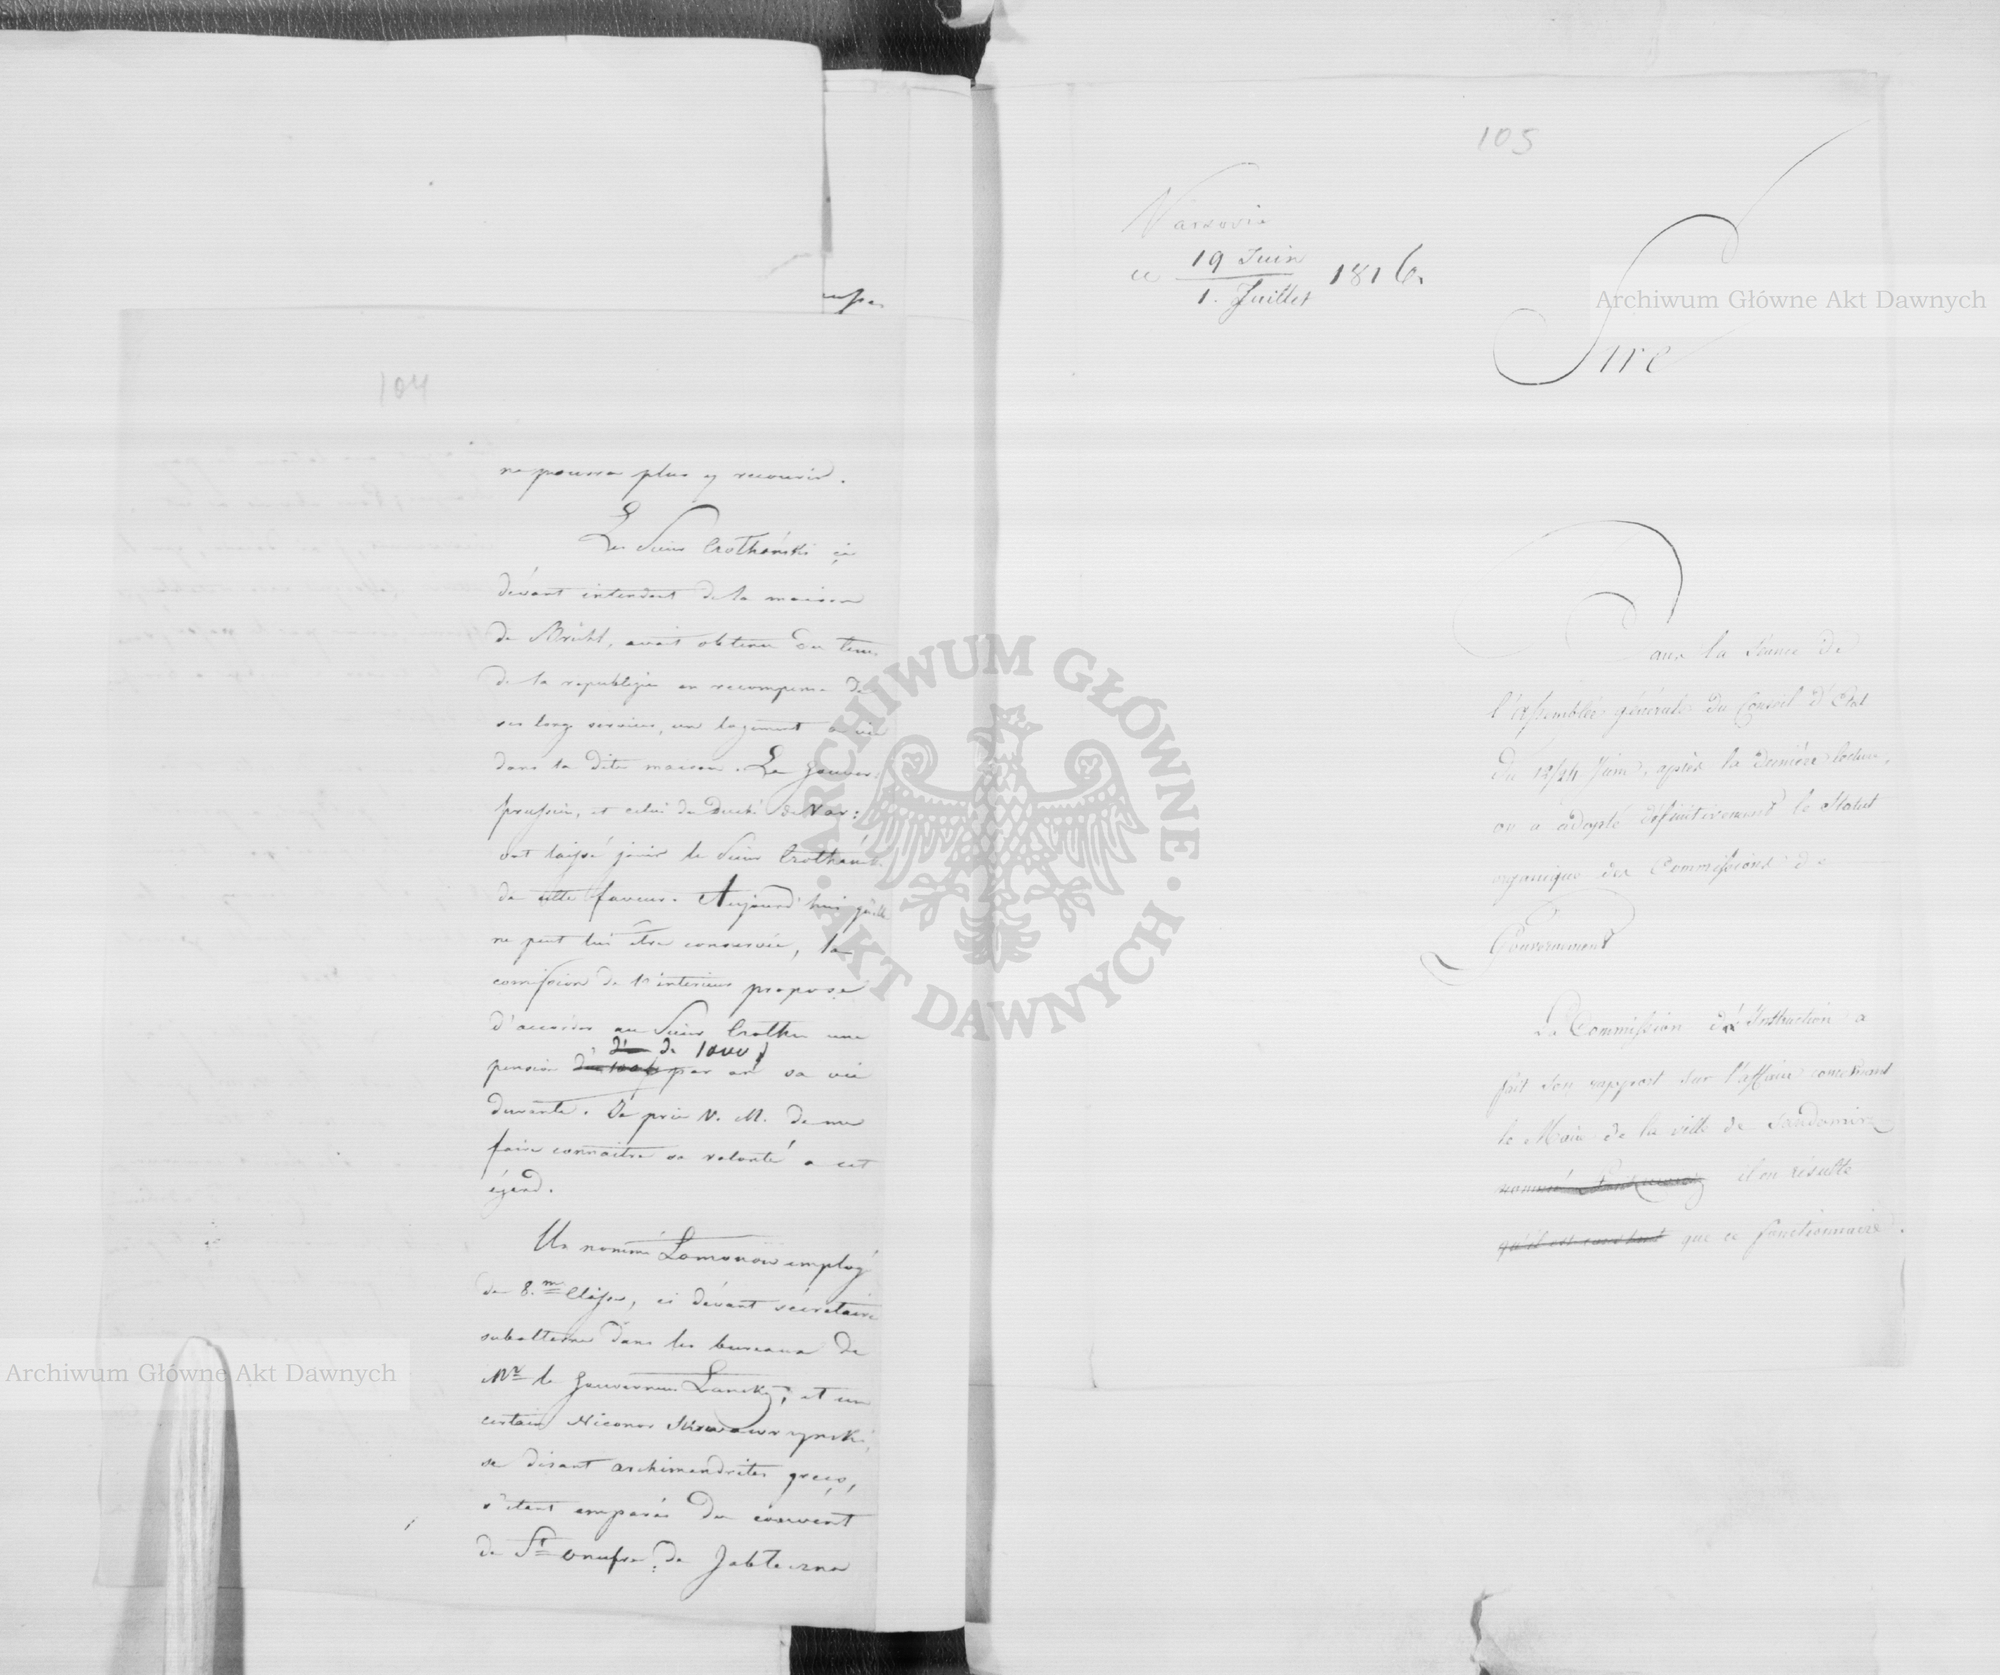 104
ne pourra plus y recourir.
Le Sieur Crothonski ci
dévant intendant de la maison
de Brühl, avait obtenu du tems
de la republique en recompense de
ses longs services, un logement a vie
dans la dite maison. Le Gouver:
prussien, et celui du Duché de Var:
ont laissé jouir le Sieur
de cette faveur. Aujourd'hui qu'elle
ne peut lui être conservée, la
comission de l'interieur propose
d'accorder au Sieur une
de 1000 f
pension par an sa vie
durante. Je prie V. M. de me
faire connaitre sa volonté a cet
égard.
Un nommé Lomonow employé
de 8.me Classe, ci dévant sécretaire
subalterne dans les bureaux de
Mr le Gouverneur Lanskoy, et un
certain Niconor
se disant archimandrites grecs,
s'étant emparés du couvent
de St Onufre de Jableczna
105
Varsovie
ce 19 Juin 1816.
1. Juillet
Sire
Dans la Séance de
l'Assemblée générale du Conseil d'Etat
du 12/24 Juin, après la dernière lecture,
on a adopté définitivement le Statut
organique des Commissions de
Gouvernement
La Commission de l'Instruction a
fait son rapport sur l'affaire concernant
le Maire de la ville de Sandomir
nommé il en résulte
qu'il est constant que ce fonctionnaire
Archiwum Główne Akt Dawnych
Archiwum Główne Akt Dawnych
ARCHIWUM GŁÓWNE
AKT DAWNYCH